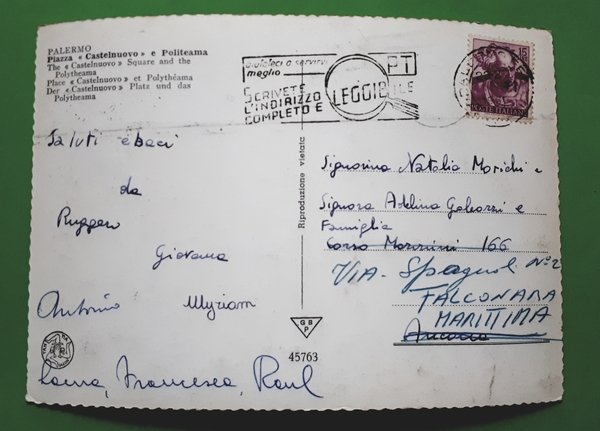 PALERMO
Piazza « Castelnuovo » e Politeama
The « Castelnuovo » Square and the
Polytheama
Place « Castelnuovo » et Polythéama
Der « Castelnuovo » Platz und das
Polytheama
aiutateci a servirvi
meglio
SCRIVETE
L'INDIRIZZO
COMPLETO E
LEGGIBILE
PT
15
POSTE ITALIANE
Saluti e baci
da
Giovanna
Antonio Myriam
Francesca, Raul
Riproduzione vietata
G B
P
45763
Signorina Natalia
Signora Adelina e
Famiglia
Corso 166
VIA - Spagnoli N° 2
FALCONARA
MARITTIMA
Ancona